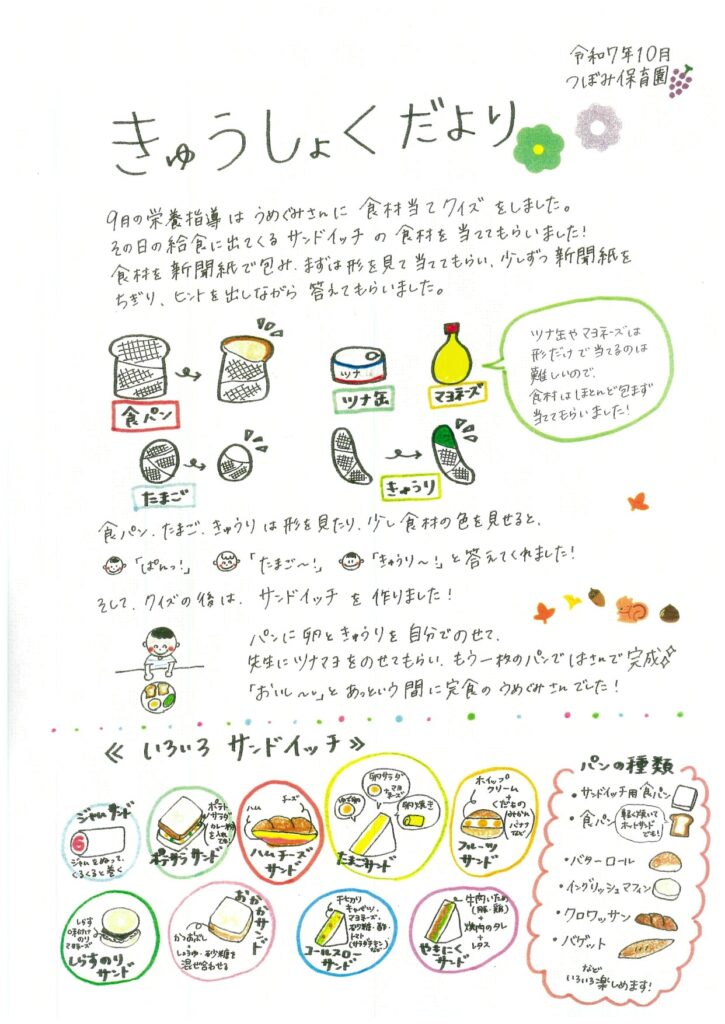 令和7年10月
つぼみ保育園
きゅうしょくだより
9月の栄養指導は うめぐみさんに 食材当てクイズをしました。
その日の給食に出てくる サンドイッチ の 食材を 当ててもらいました!
食材を新聞紙で包み、まずは形を見て当ててもらい、少しずつ新聞紙を
ちぎり、ヒントを出しながら 答えてもらいました。
食パン
ツナ
ツナ缶
マヨネーズ
ツナ缶やマヨネーズは
形だけで当てるのは
難しいので、
食材はほとんど包まず
当ててもらいました!
たまご
きゅうり
食パン、たまご、きゅうりは形を見たり、少し食材の色を見せると、
「ぱんっ!」 「たまご〜!」 「きゅうり〜!」と答えてくれました!
そして、クイズの後は、サンドイッチを作りました!
パンに卵ときゅうりを自分でのせて、
先生にツナマヨをのせてもらい、もう一枚のパンではさんで完成
「おいし〜い」とあっという間に完食のうめぐみさんでした!
≪いろいろ サンドイッチ≫
ジャムサンド
ジャムをぬって、
くるくると巻く
ポテト
サラダ
カレー粉
を入れ
ても!
ポテサラサンド
ハム
チーズ
ハムチーズ
サンド
ゆで卵
卵サラダ
マヨ
ネーズ
卵焼き
たまごサンド
ホイップ
クリーム
+
くだもの
みかん
バナナ
など
フルーツ
サンド
しらす
味付け
のり
マヨネーズ
しらすのり
サンド
おかかサンド
かつおぶし
しょうゆ・砂糖を
混ぜ合わせる
千切り
キャベツ、
マヨネーズ、
砂糖・酢、
トマト
(サラダチキン)
など
コールスロー
サンド
牛肉いため
(豚・鶏)
+
焼肉のタレ
+
レタス
やきにく
サンド
パンの種類
・サンドイッチ用食パン
・食パン
軽く焼いて
ホットサンド
でも!
・バターロール
・イングリッシュマフィン
・クロワッサン
・バゲット
など
いろいろ楽しめます!